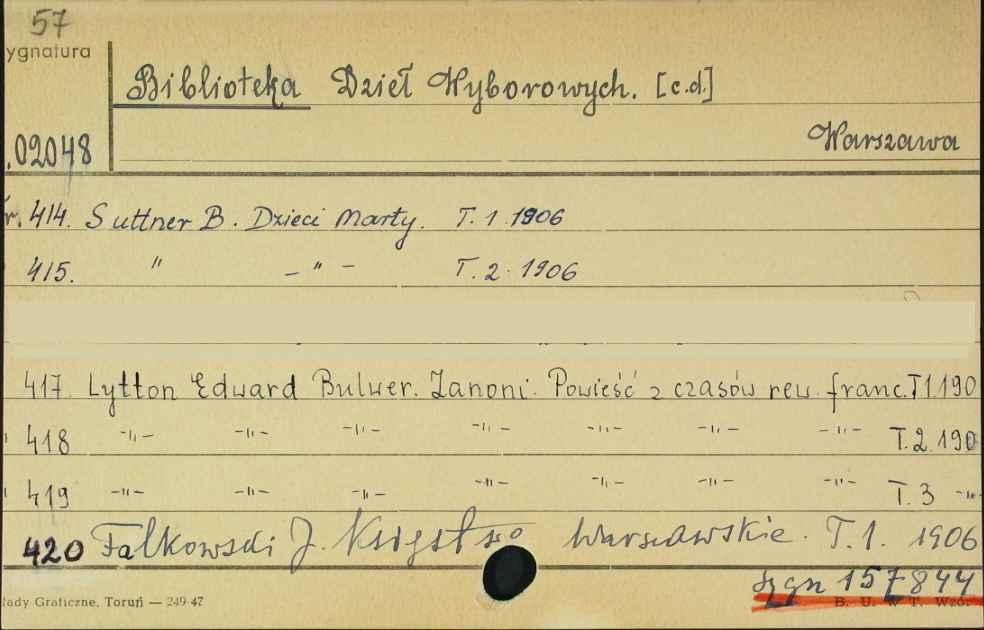 57
ygnatura
Biblioteka Dzieł Wyborowych. [c.d.]
.02048
Warszawa
r. 414. Suttner B. Dzieci Marty. T. 1. 1906
415. " - " - T. 2. 1906
417. Lytton Edward Bulwer. Zanoni. Powieść z czasów rew. franc. T.1.190
418 -"- -"- -"- -"- -"- -"- -"- T. 2. 190
419 -"- -"- -"- -"- -"- -"- -"- T. 3 -"-
420 Falkowski J. Księstwo Warszawskie. T. 1. 1906
sygn 157844
łady Graficzne, Toruń — 249-47 B. U. W T. Wzór